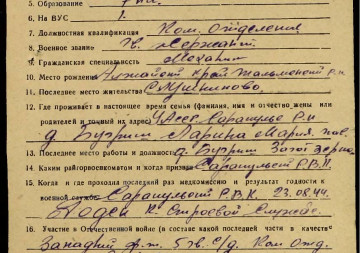 5. Образование 7 кл.
6. На ВУС 1.
7. Должностная квалификация Ком. отделения
8. Военное звание Гв. Сержант
9. Гражданская специальность Механик
10. Место рождения Алтайский край Тальменский р-н
11. Последнее место жительства
12. Где проживает в настоящее время семья (фамилия, имя и отчество жены или
родителей и точный их адрес) Сарапульс. Р-н
д. Ларина Мария
13. Последнее место работы и должность д.
14. Каким райгорвоенкоматом и когда призван Сарапульский Р.В.К.
15. Когда и где проходил последний раз медкомиссию и результат годности к
военной службе Сарапульский Р.В.К. 23.08.44.
Годен к строевой службе.
16. Участие в Отечественной войне (в составе какой последней части и в качестве
Западный ф-т. 5 гв. с/д. Ком. отд.